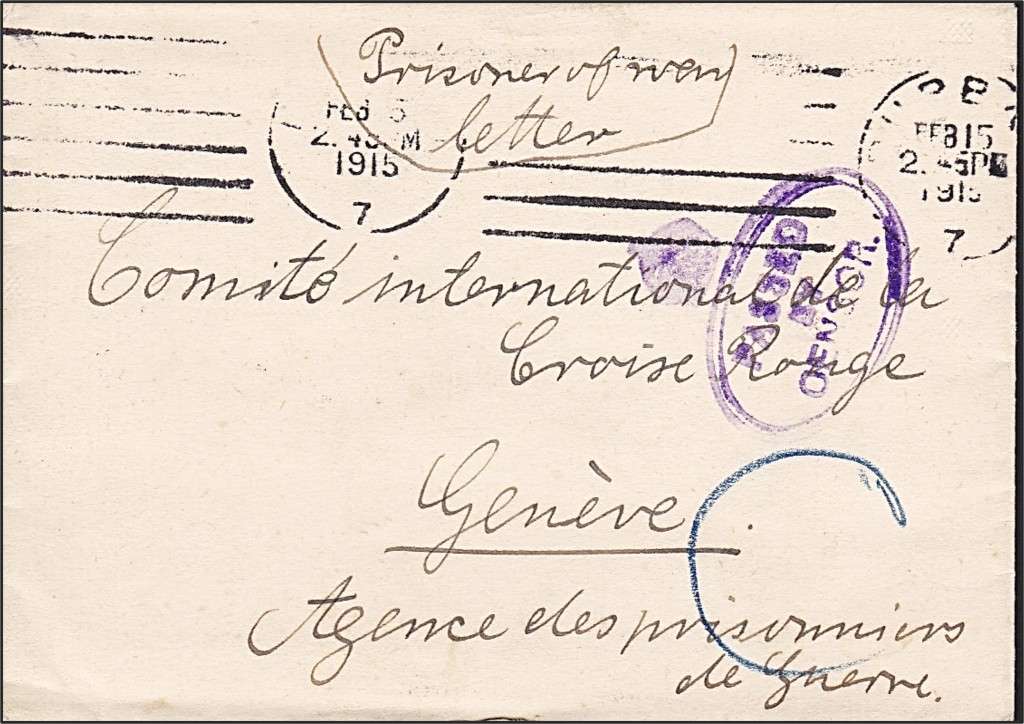 Prisoner of war
letter
FEB 15
2.45 PM
1915
7
FEB 15
2.45 PM
1915
7
PASSED
BY
CENSOR.
Comité international de la
Croise Rouge
Genève
Agence des prisonniers
de Guerre.
C